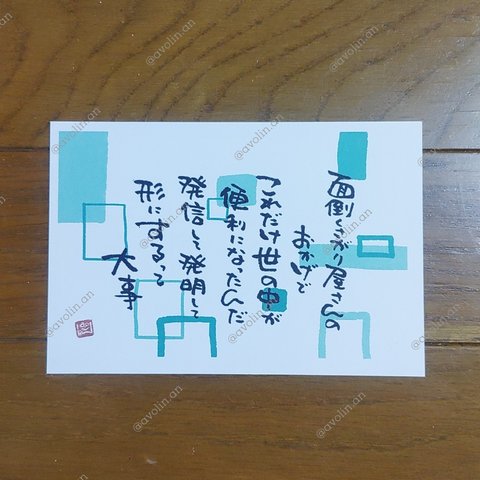 面倒くさがり屋さんの
おかげで
これだけ世の中が
便利になったんだ
発信して発明して
形にするって
大事
@avolin.an